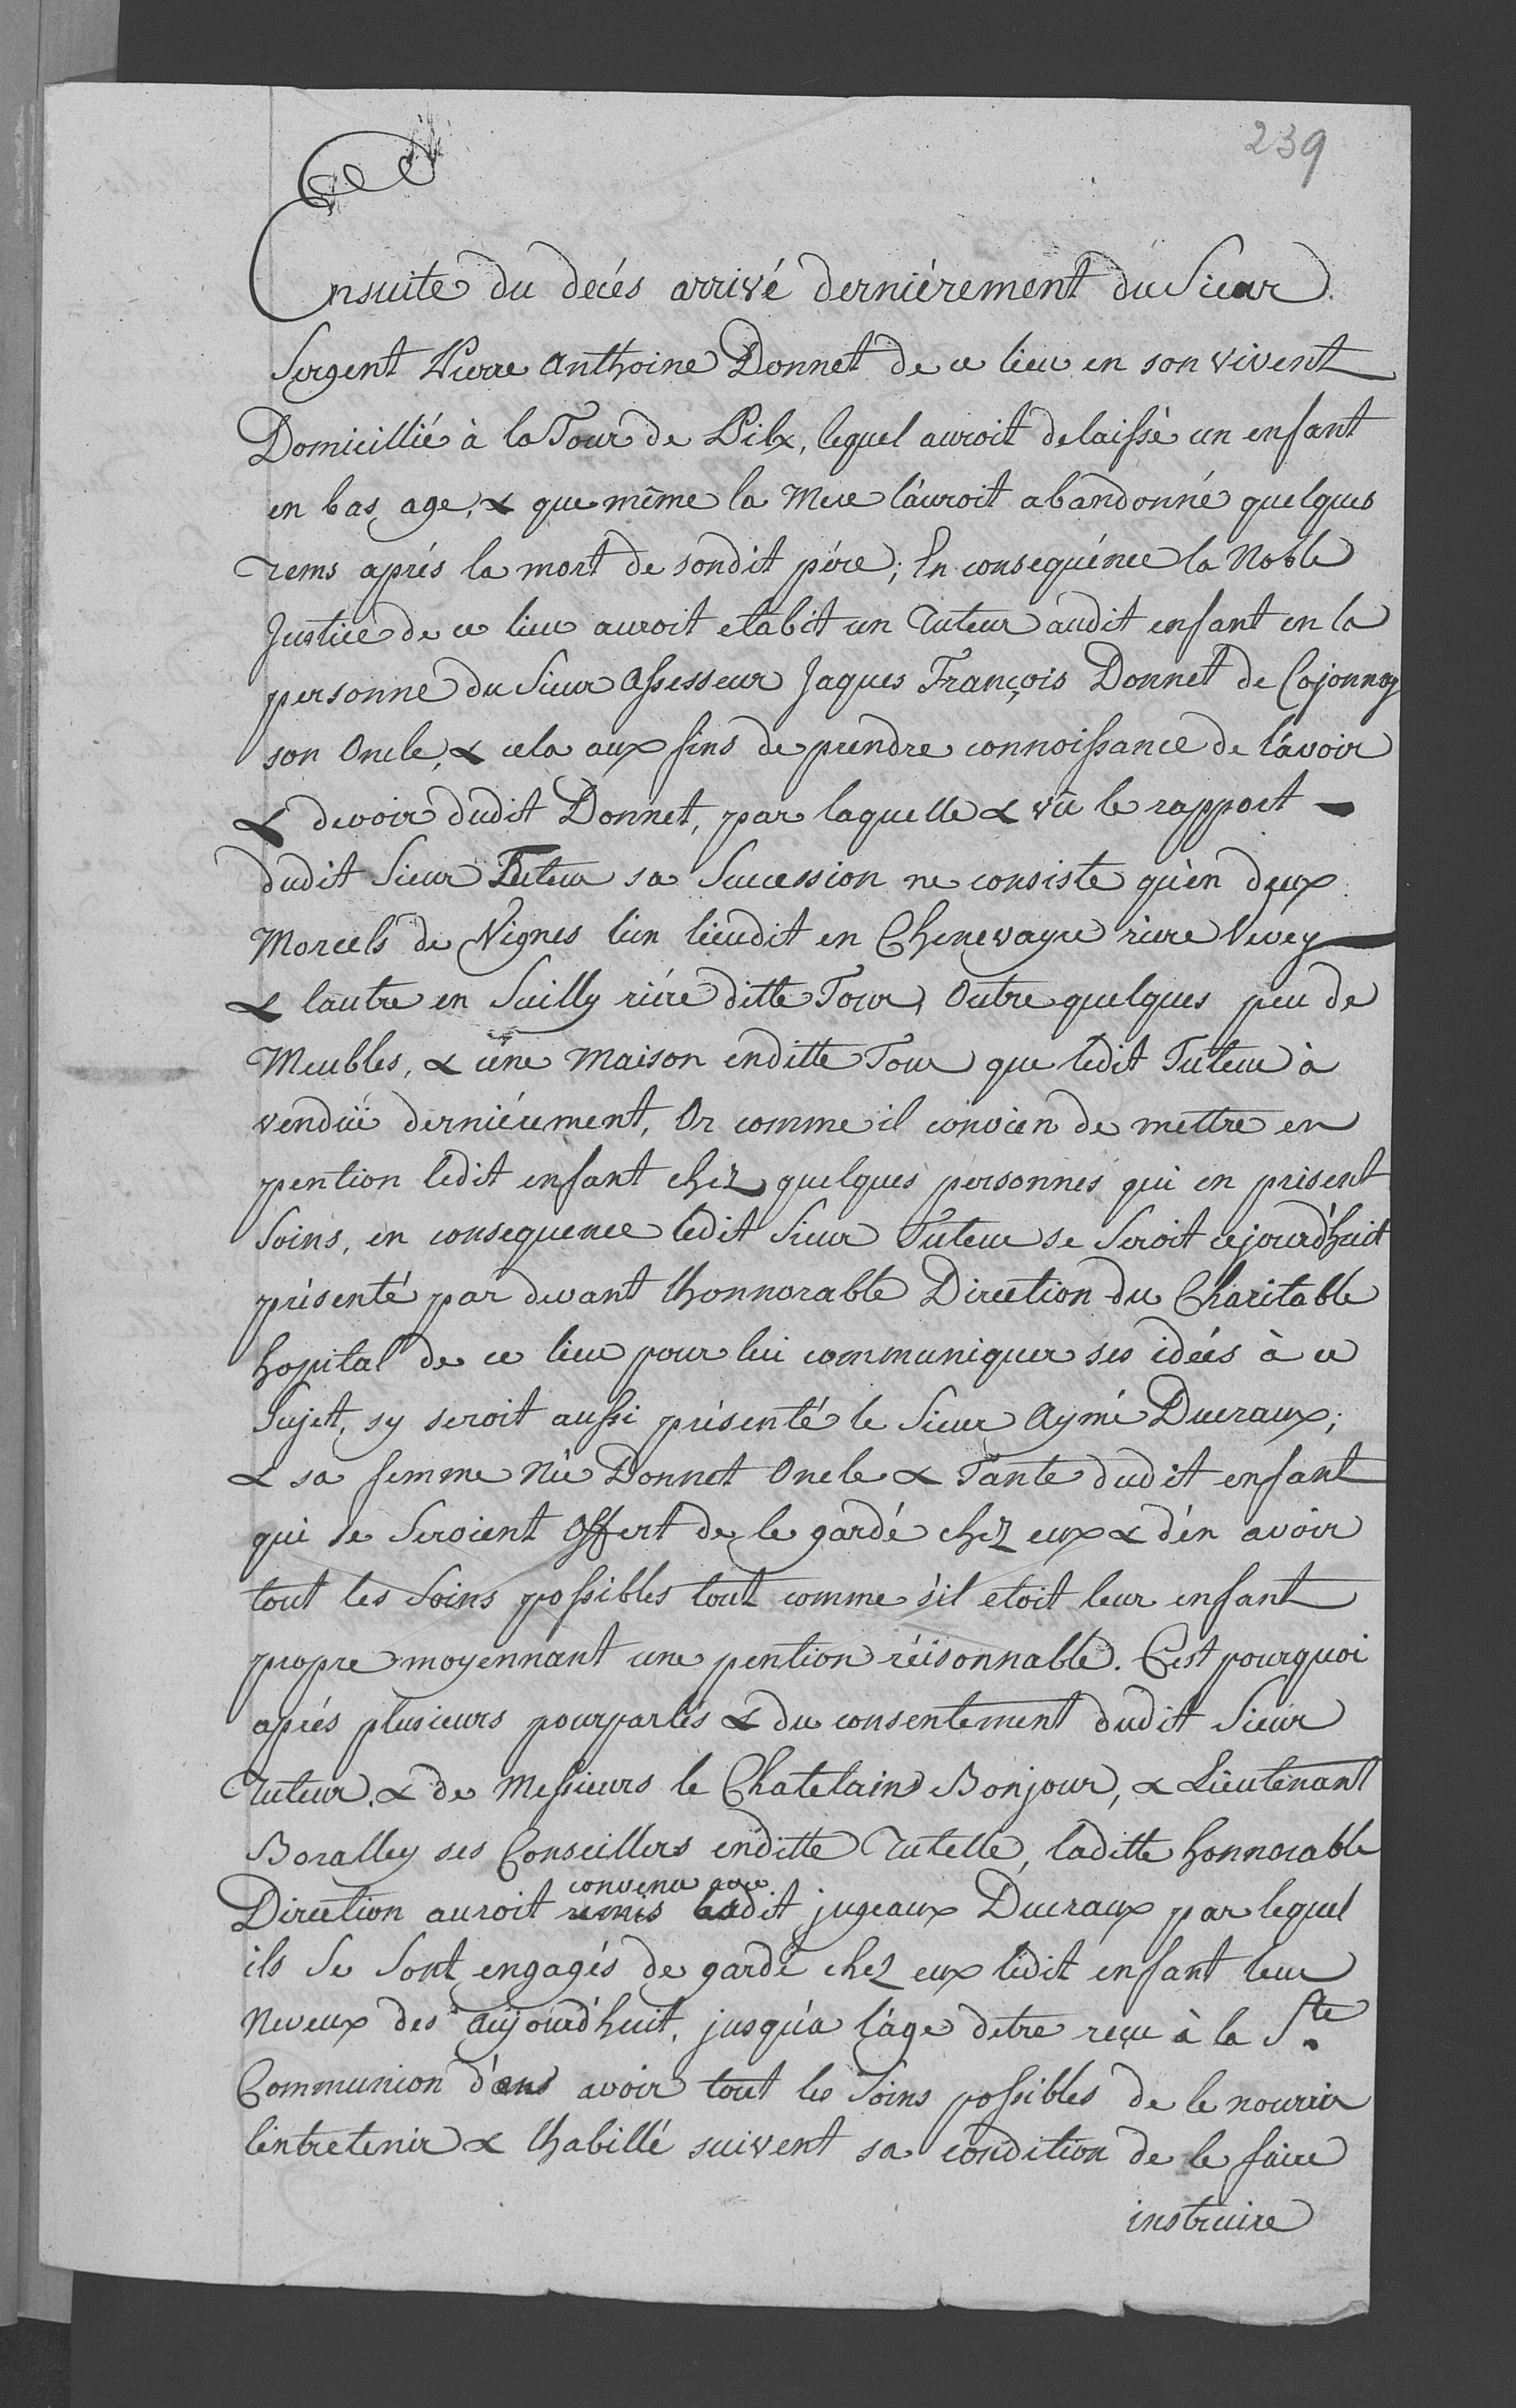 239
Ensuite du decés arrivé derniérement du Sieur
Sergent Pierre Anthoine Donnet de ce lieu en son vivent
Domicillié à la Tour de Pilx, lequel auroit delaissé un enfant
en bas age, & que même la Mere láuroit abandonné quelques
tems aprés la mort de sondit pére; En consequénce la Noble
Justice de ce lieu auroit etabit un Tuteur audit enfant en la
personne du Sieur Assesseur Jaques François Donnet de Cojonnay
son Oncle, & cela aux fins de prendre connoissance de lávoir
& devoir dudit Donnet, par laquelle & vû le rapport
dudit Sieur Tuteur sa Succession ne consiste qu'èn deux
Morcels de Vignes l'ún lieudit en Chenevayre riere Vevey
& lautre en Suilly riére ditte Tour, Outre quelques peu de
Meubles, & úne Maison enditte Tour que ledit Tuteur à
vendüe derniérement, Or comme il convien de mettre en
pention ledit enfant chez quelques personnes qui en prisent
Soins, en consequence ledit Sieur Tuteur se Seroit cejourd'huit
présenté par devant lhonnorable Direction du Charitable
hopital de ce lieu pour lui communiquer ses idées à ce
Sujet, sy seroit aussi présenté le Sieur Aymé Ducraux;
& sa femme Née Donnet Oncle & Tante dudit enfant
qui se Seroient Offert de le gardé chez eux & d'én avoir
tout les Soins possibles tout comme s'il etoit leur enfant
propre moyennant une pention réisonnable. C'est pourquoi
aprés plusieurs pourparlés & du consentement dudit Sieur
Tuteur, & de Messieurs le Chatelain Bonjour, & Lieutenant
Boralley ses Conseillers enditte Tutelle, laditte honnorable
convenu avec
Direction auroit remis ledit jugeaux Ducraux par lequel
ils Se Sont engagés de gardé chez eux ledit enfant leur
Neveux des aujourd'huit, jusqu'a l'age detre reçu à la Ste
Communion d'en avoir tout les Soins possibles de le nourrir
lentretenir & lhabillé suivent sa condition de le faire
instruire